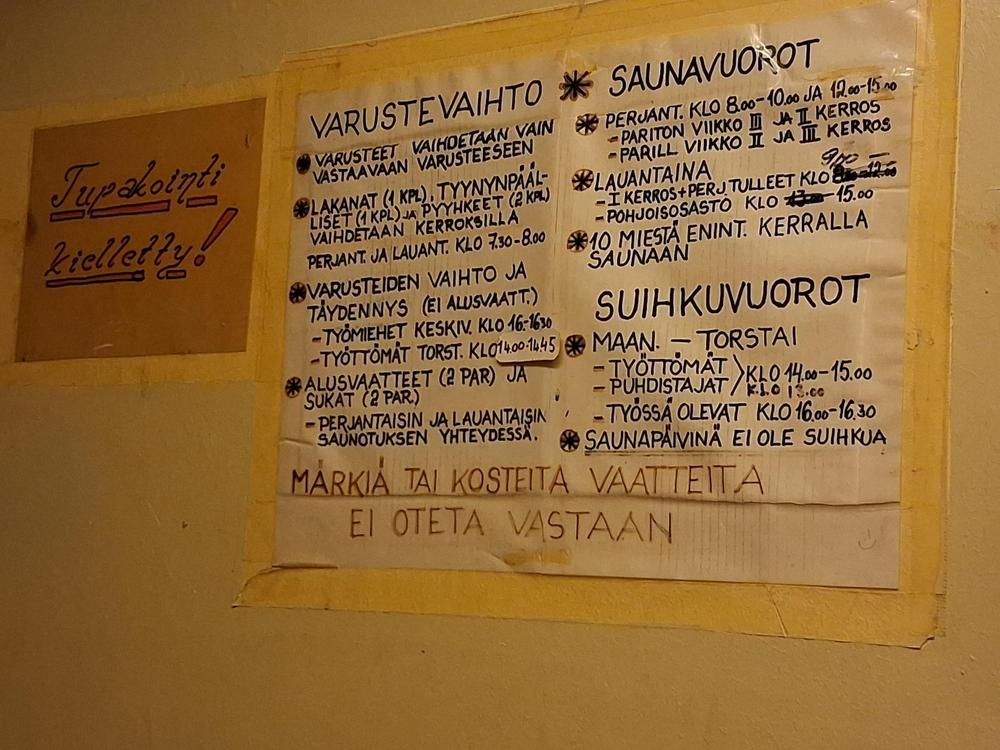 Tupakointi
kielletty!
VARUSTEVAIHTO
VARUSTEET VAIHDETAAN VAIN
VASTAAVAAN VARUSTEESEEN
LAKANAT (1 KPL), TYYNYNPÄÄL-
LISET (1 KPL) JA PYYHKEET (2 KPL)
VAIHDETAAN KERROKSILLA
PERJANT. JA LAUANT. KLO 7.30-8.00
VARUSTEIDEN VAIHTO JA
TÄYDENNYS (EI ALUSVAATT.)
- TYÖMIEHET KESKIV. KLO 16-16.30
- TYÖTTÖMÄT TORST. KLO 14.00-14.45
ALUSVAATTEET (2 PAR) JA
SUKAT (2 PAR.)
- PERJANTAISIN JA LAUANTAISIN
SAUNOTUKSEN YHTEYDESSÄ.
SAUNAVUOROT
PERJANT. KLO 8.00-10.00 JA 12.00-15.00
- PARITON VIIKKO III JA II KERROS
- PARILL VIIKKO II JA III KERROS
LAUANTAINA
- I KERROS + PERJ. TULLEET KLO 9.00 -
- POHJOISOSASTO KLO - 15.00
10 MIESTÄ ENINT. KERRALLA
SAUNAAN
SUIHKUVUOROT
MAAN. - TORSTAI
- TYÖTTÖMÄT
- PUHDISTAJAT
KLO 14.00-15.00
KLO 13.00
- TYÖSSÄ OLEVAT KLO 16.00-16.30
SAUNAPÄIVINÄ EI OLE SUIHKUA
MÄRKIÄ TAI KOSTEITA VAATTEITA
EI OTETA VASTAAN